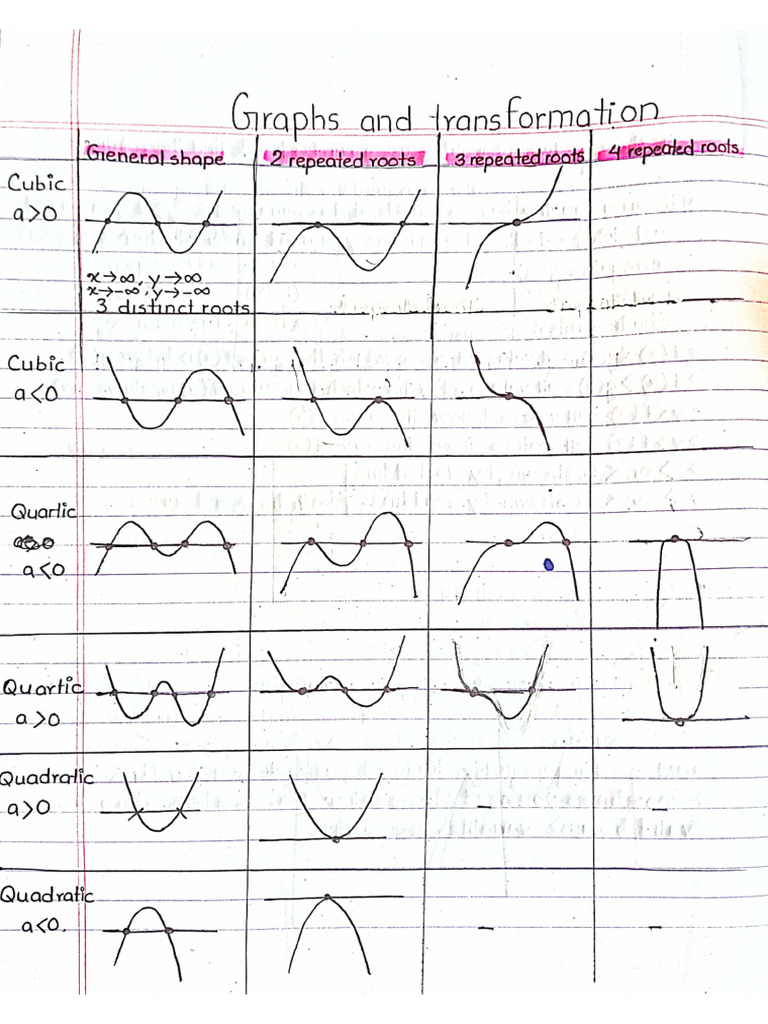 Graphs and transformation
General shape 2 repeated roots 3 repeated roots 4 repeated roots
Cubic
a>0
x→∞, y→∞
x→-∞, y→-∞
3 distinct roots
Cubic
a<0
Quartic
a<0
Quartic
a>0
Quadratic
a>0
- -
Quadratic
a<0.
- -